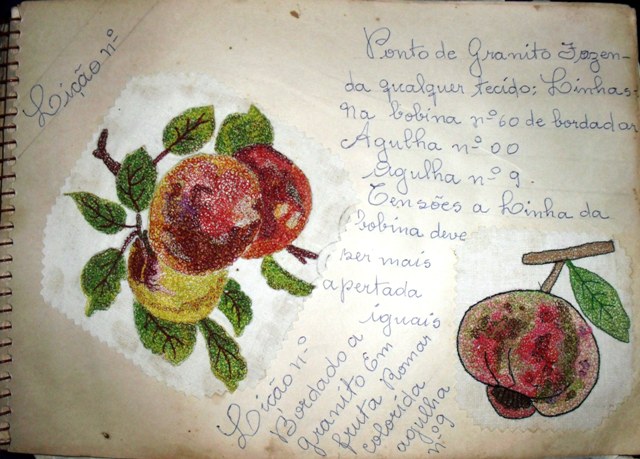 Lição nº
Ponto de Granito Fazen-
da qualquer tecido; Linhas:
Na bobina nº 60 de bordadar
Agulha nº 00
Agulha nº 9.
Tensões a Linha da
bobina deve
ser mais
apertada
iguais
Lição nº
Bordado a
granito Em
fruta Romar
colorida
agulha
nº 9